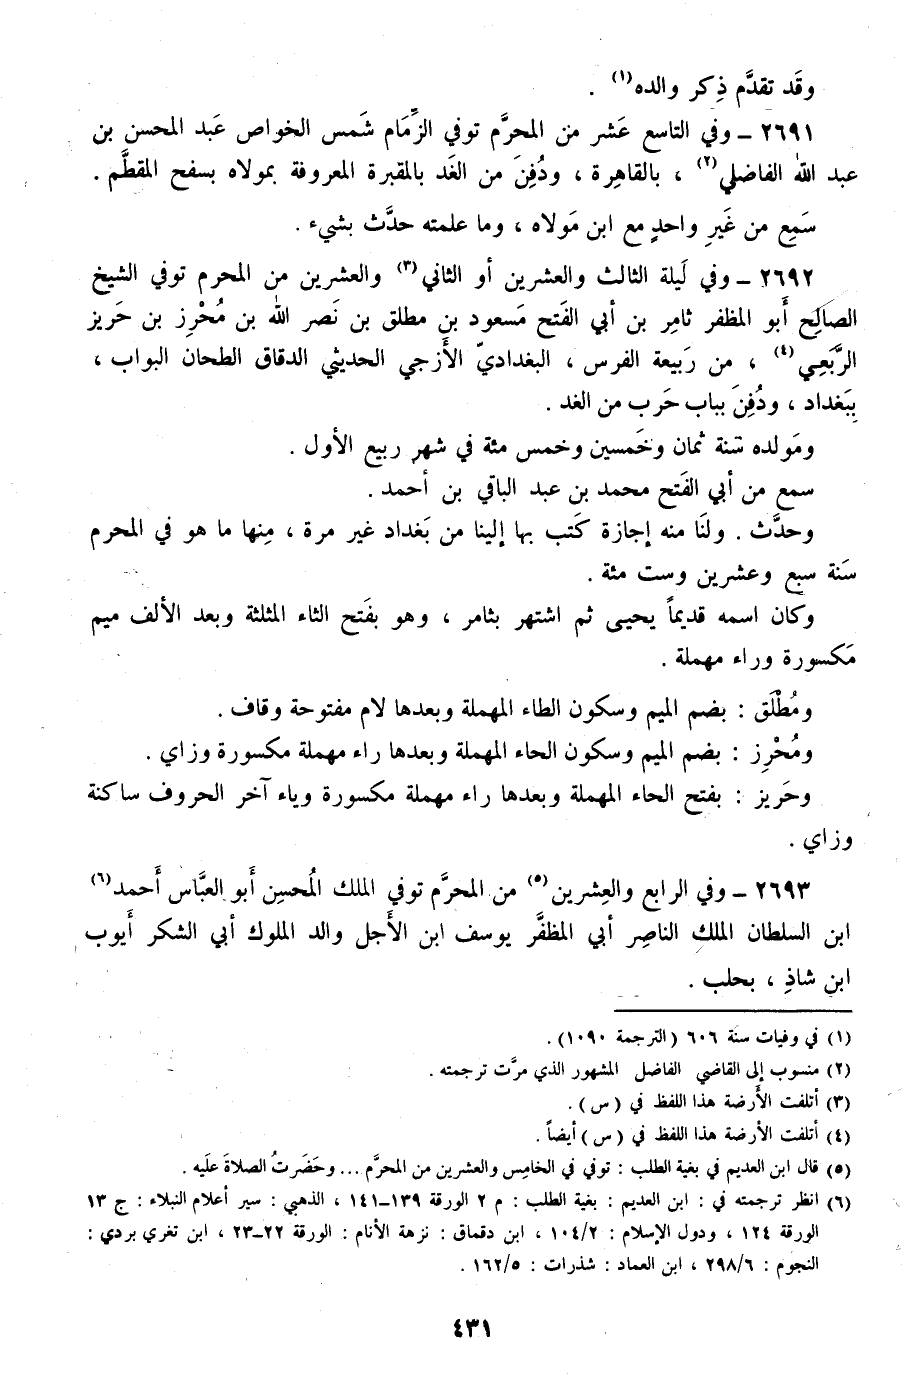 وقَد تقدَّم ذِكر والده(١) .
٢٦٩١ ــ وفي التاسع عَشر من المحرَّم توفي الزِّمَام شَمس الخواص عَبد المحسن بن
عبد الله الفاضلي(٢) ، بالقاهِرة ، ودُفِنَ من الغَد بالمقبرة المعروفة بمولاه بسفح المقطَّم .
سَمِع من غَيرِ واحدٍ مع ابن مَولاه ، وما علمته حدَّث بشيء .
٢٦٩٢ ــ وفي لَيلة الثالث والعشرين أو الثاني(٣) والعشرين من المحرم توفي الشيخ
الصالِح أَبو المظفر ثامِر بن أبي الفَتح مَسعود بن مطلق بن نَصر الله بن مُحْرِز بن حَريز
الرَّبَعِي(٤) ، من رَبيعة الفرس ، البغداديّ الأَزجي الحديثي الدقاق الطحان البواب ،
بِبَغداد ، ودُفِنَ بباب حَرب من الغد .
ومَولده سَنة ثمان وخَمسين وخمس مئة في شهر ربيع الأول .
سمع من أبي الفَتح محمد بن عبد الباقي بن أحمد .
وحدَّث . ولنَا منه إجازة كَتب بها إلينا من بَغداد غير مرة ، مِنها ما هو في المحرم
سَنة سبع وعشرين وست مئة .
وكان اسمه قديماً يحيى ثم اشتهر بثامر ، وهو بفَتح الثاء المثلثة وبعد الألف ميم
مَكسورة وراء مهملة .
ومُطْلَق : بضم الميم وسكون الطاء المهملة وبعدها لام مفتوحة وقاف .
ومُحْرِز : بضم الميم وسكون الحاء المهملة وبعدها راء مهملة مكسورة وزاي .
وحَريز : بفتح الحاء المهملة وبعدها راء مهملة مكسورة وياء آخر الحروف ساكنة
وزاي .
٢٦٩٣ ــ وفي الرابع والعِشرين(٥) من المحرَّم توفي الملك المُحسِن أَبو العبَّاس أَحمد(٦)
ابن السلطان الملك الناصِر أبي المظفَّر يوسف ابن الأَجل والد الملوك أبي الشكر أَيوب
ابن شاذِ ، بحلب .
(١) في وفيات سنة ٦٠٦ (الترجمة ١٠٩٠) .
(٢) منسوب إلى القاضي الفاضل المشهور الذي مرَّت ترجمته .
(٣) أتلفت الأَرضة هذا اللفظ في (س) .
(٤) أتلفت الأرضة هذا اللفظ في (س) أيضاً .
(٥) قال ابن العديم في بغية الطلب : توفي في الخامِس والعشرين من المحرَّم ... وحَضَرتُ الصلاةَ علَيه .
(٦) انظر ترجمته في : ابن العديم : بغية الطلب : م ٢ الورقة ١٣٩ــ١٤١ ، الذهبي : سير أعلام النبلاء : ج ١٣
الورقة ١٢٤ ، ودول الإسلام : ١٠٤/٢ ، ابن دقماق : نزهة الأنام : الورقة ٢٢ــ٢٣ ، ابن تغري بردي :
النجوم : ٢٩٨/٦ ، ابن العماد : شذرات : ١٦٢/٥ .
٤٣١